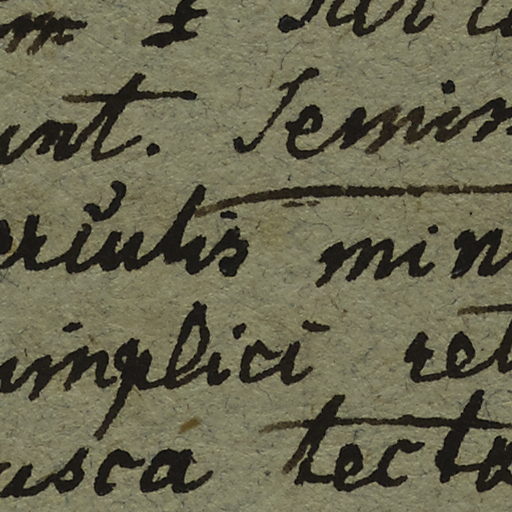 unt. Semin
erculis min
implici ret
usca tecta